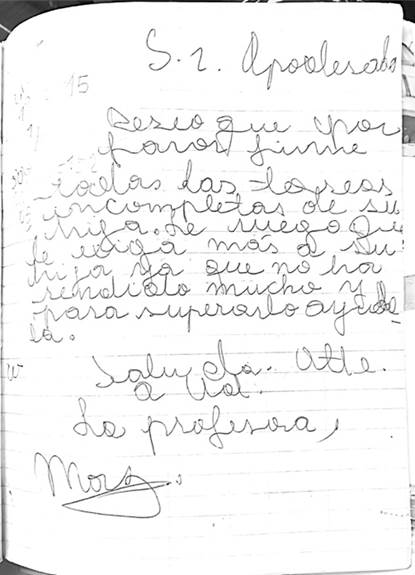 S.r. Apoderado
Deseo que por
favor firme
todas las tareas
incompletas de su
hija. Le ruego que
le exiga más a su
hija ya que no ha
rendido mucho y
para superarlo ayude_
la.
Saluda. Atte.
a Ud.
La profesora,